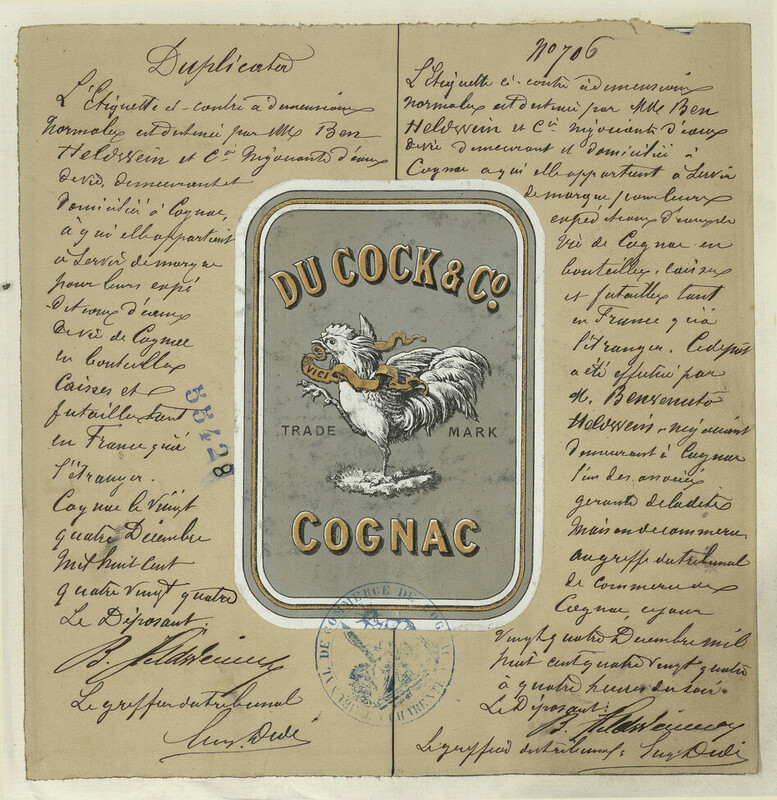 Duplicata
L'Etiquette ci-contre à dimensions
normales est destinée par MM. Ben
Heldwein et Cie négociants d'eaux
de vie, demeurant et
domiciliés à Cognac,
à qui elle appartient
à servir de marque
pour leurs expé
ditions d'eaux
de vie de Cognac
en bouteilles
caisses et
futailles tant
en France qu'à
l'étranger.
Cognac le vingt
quatre Décembre
mil huit cent
quatre vingt quatre
Le Déposant.
B. Heldwein
Le greffier du tribunal
55428
DU COCK & Co
VICI
TRADE MARK
COGNAC
TRIBUNAL DE COMMERCE DE COGNAC
CHARENTE
No 706
L'Etiquette ci-contre à dimensions
normales est destinée par MM. Ben
Heldwein et Cie négociants d'eaux
de vie demeurant et domiciliés à
Cognac à qui elle appartient à servir
de marque pour leurs
expéditions d'eaux de
vie de Cognac en
bouteilles, caisses
et futailles tant
en France qu'à
l'étranger. Ce dépôt
a été effectué par
M. Benvenuto
Heldwein, négociant
demeurant à Cognac
l'un des associés
gérants de ladite
maison de commerce,
au greffe du tribunal
de commerce de
Cognac, ce jour
vingt quatre Décembre mil
huit cent quatre vingt quatre
à quatre heures du soir.
Le Déposant:
B. Heldwein
Le greffier du tribunal: